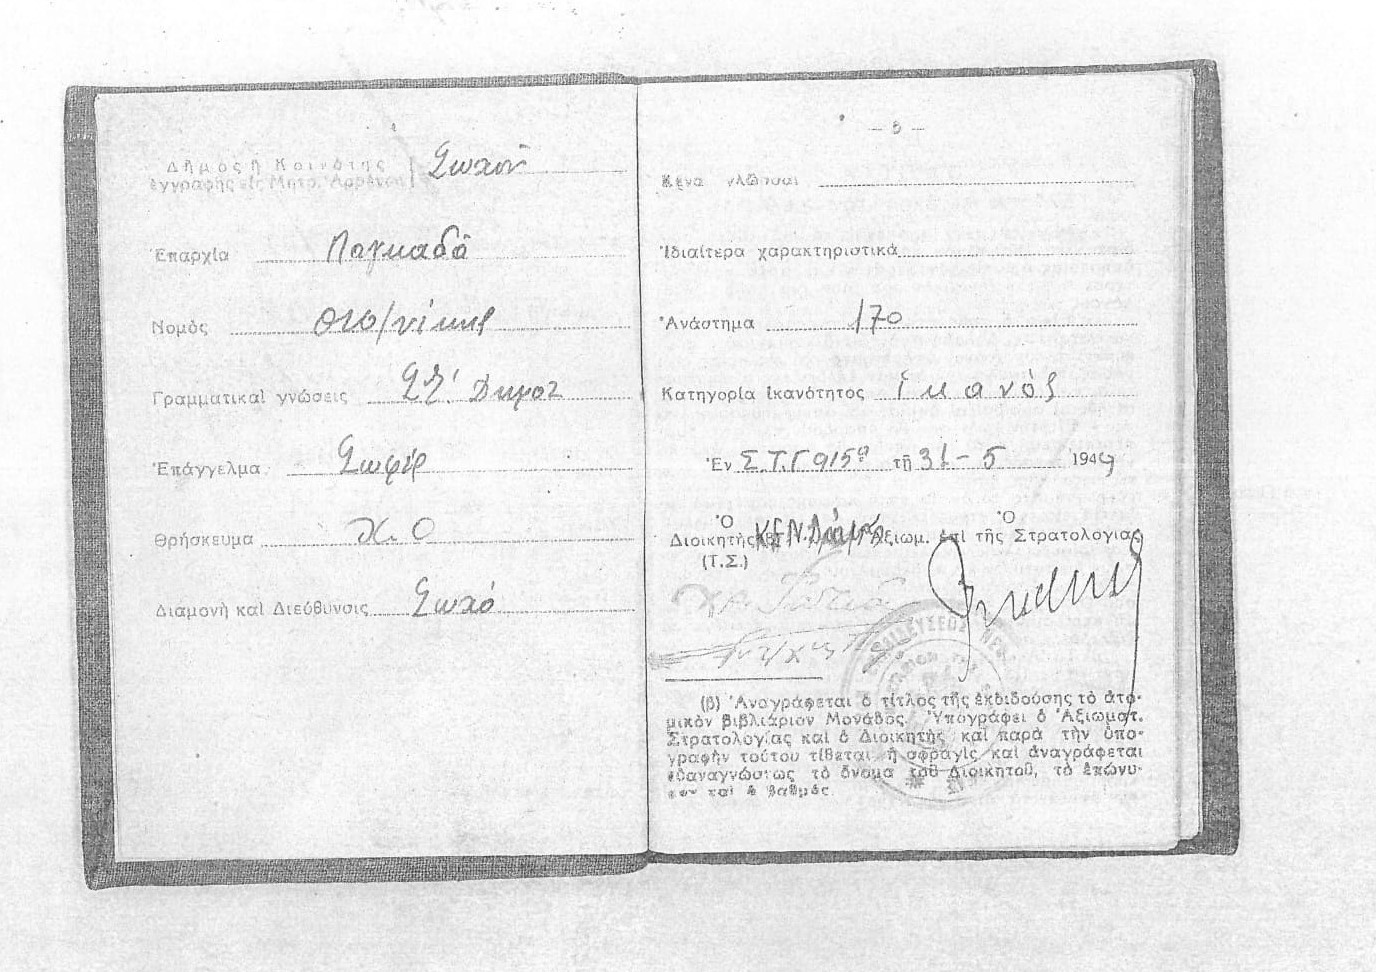 Δῆμος ἢ Κοινότης
ἐγγραφῆς εἰς Μητρ. Ἀρρένων
Σωχοῦ
Ἐπαρχία Λαγκαδᾶ
Νομὸς Θεσ/νίκης
Γραμματικαὶ γνώσεις ΣΤ! Δημοτ
Ἐπάγγελμα Σωφέρ
Θρήσκευμα Χ. Ο
Διαμονὴ καὶ Διεύθυνσις Σωχό
— 5 —
Ξένα γλῶσσαι
Ἰδιαίτερα χαρακτηριστικὰ
Ἀνάστημα 170
Κατηγορία ἱκανότητος ἱκανός
Ἐν Σ.Τ.Γ 915ᵃ τῇ 31-5 1949
Ὁ Ὁ
Διοικητὴς Κ.Ε.Ν. Ἀξιωμ. ἐπὶ τῆς Στρατολογίας
(Τ.Σ.)
(β) Ἀναγράφεται ὁ τίτλος τῆς ἐκδιδούσης τὸ ἀτο-
μικὸν βιβλιάριον Μονάδος. Ὑπογράφει ὁ Ἀξιωματ.
Στρατολογίας καὶ ὁ Διοικητὴς καὶ παρὰ τὴν ὑπο-
γραφὴν τούτου τίθεται ἡ σφραγὶς καὶ ἀναγράφεται
εὐαναγνώστως τὸ ὄνομα τοῦ Διοικητοῦ, τὸ ἐπώνυ-
μον καὶ ὁ βαθμός.